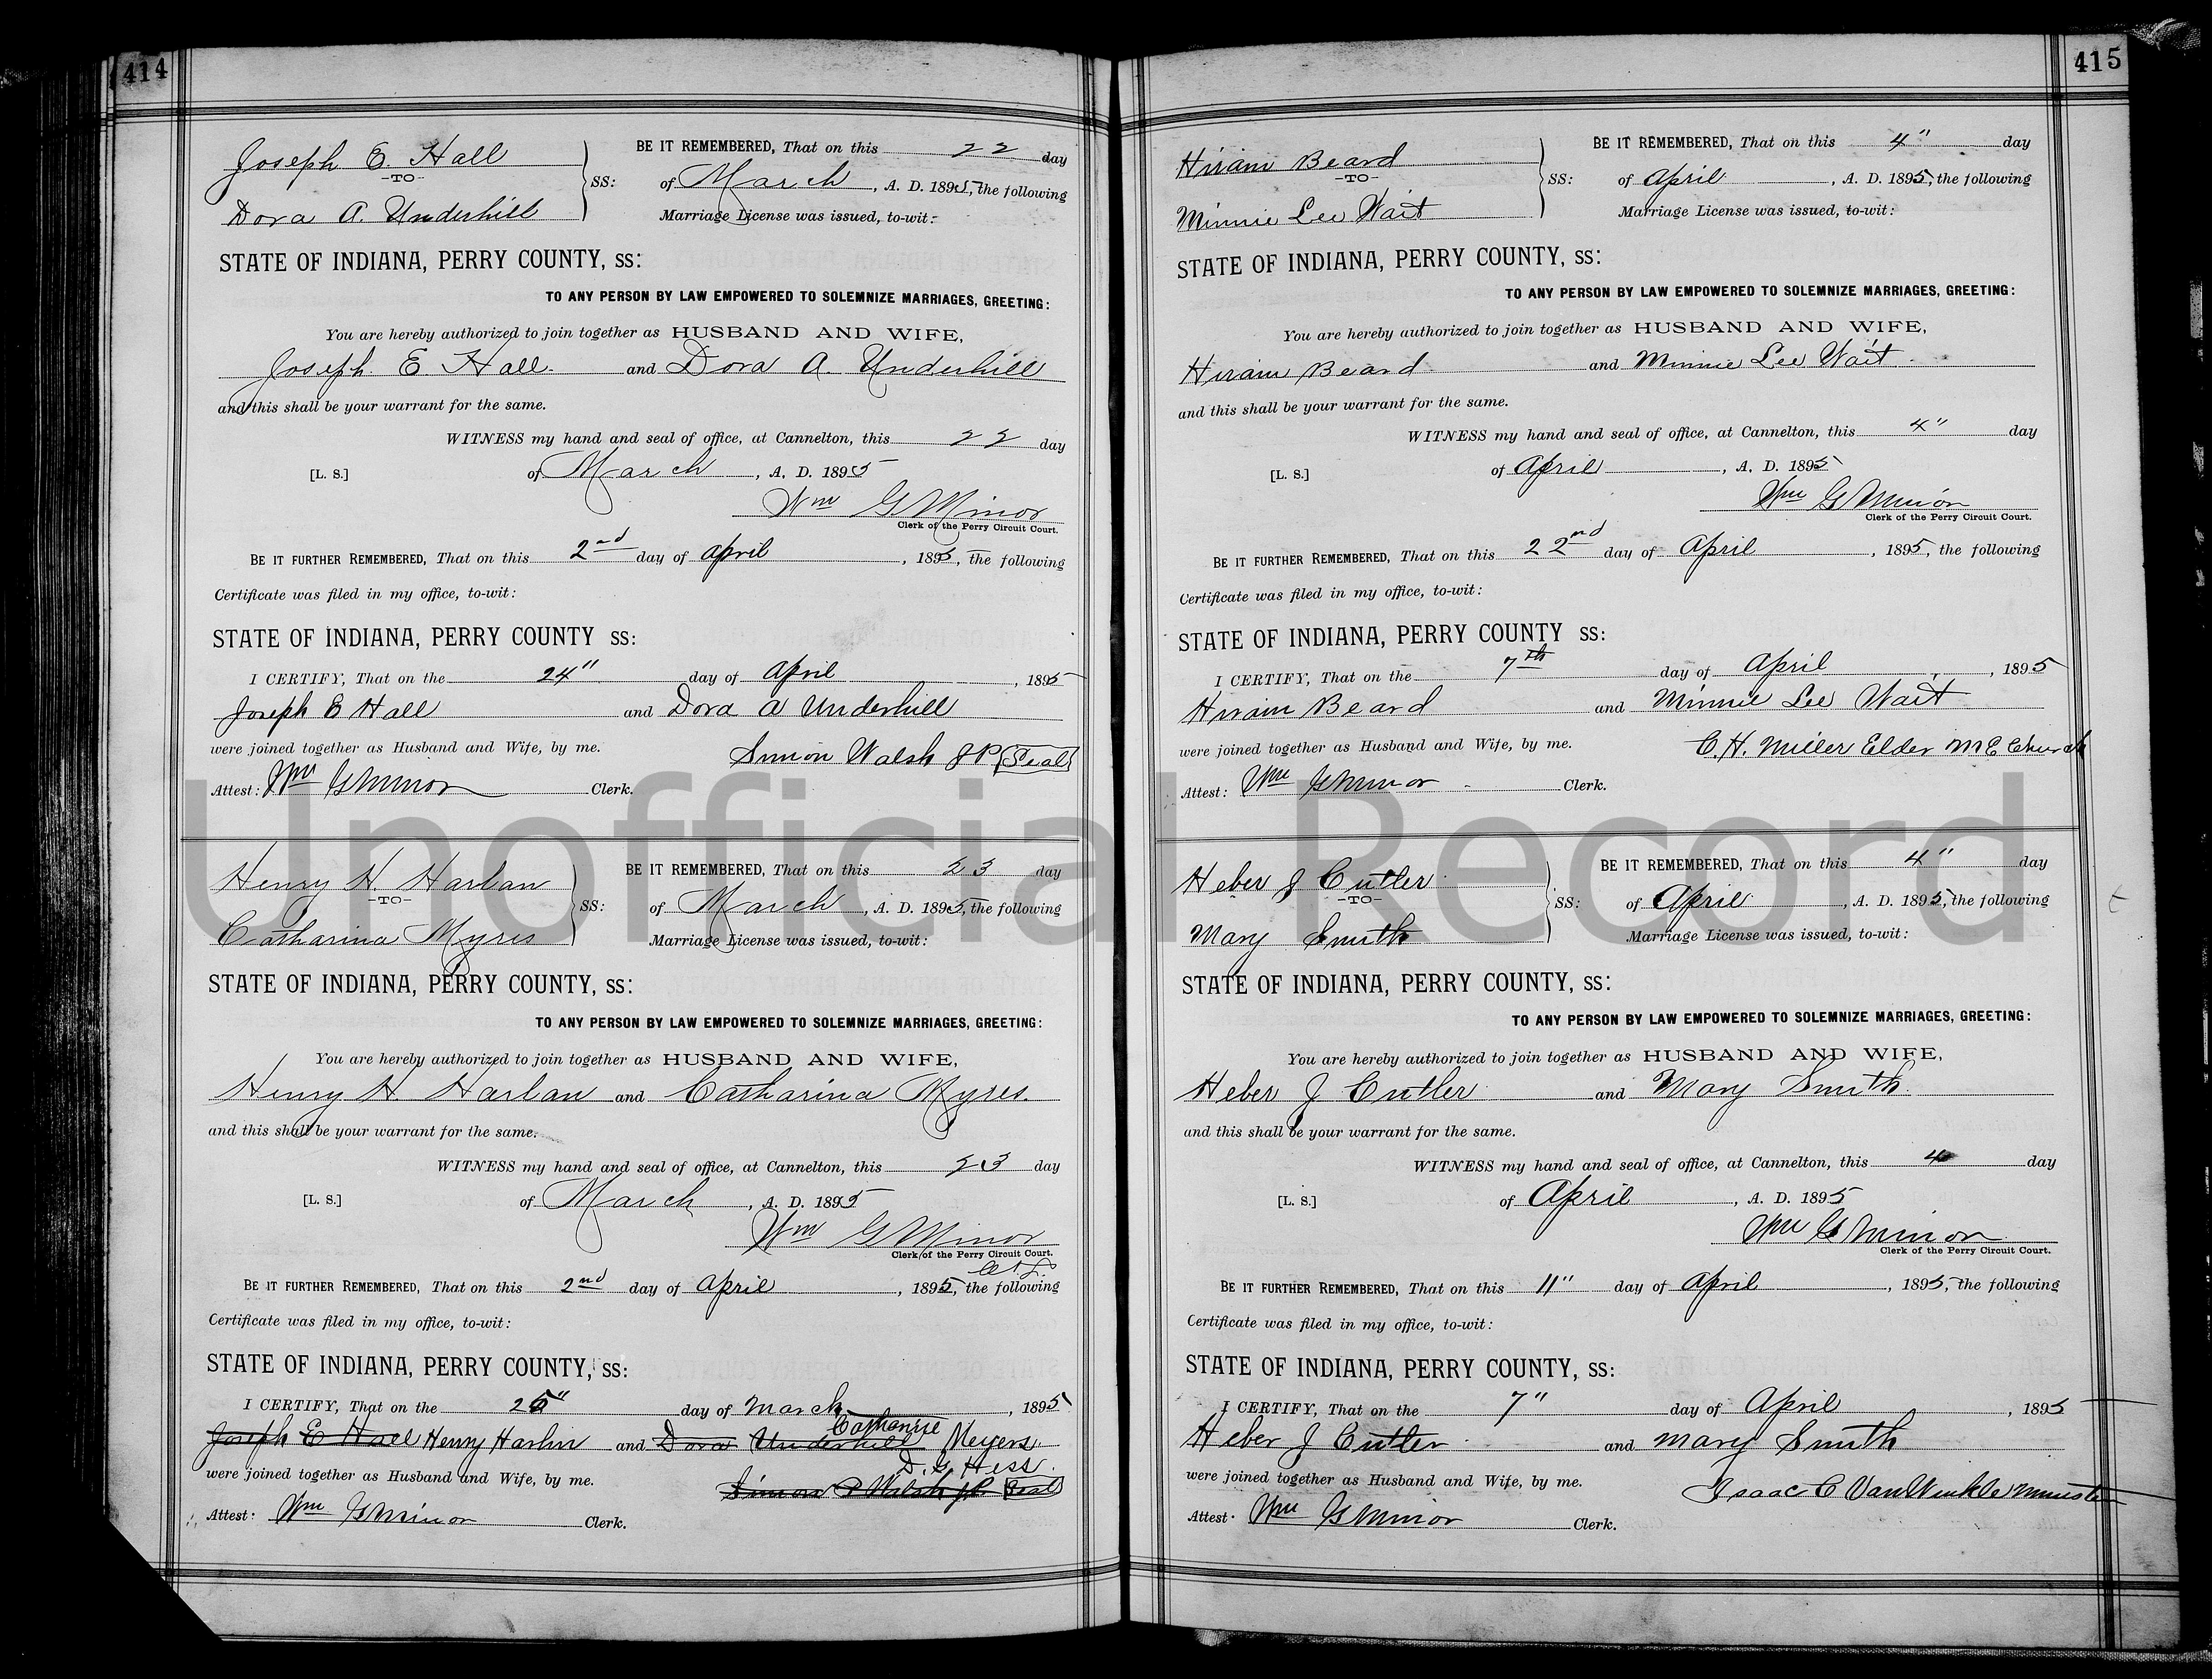 414
Joseph E. Hall
-TO-
Dora A. Underhill
SS:
BE IT REMEMBERED, That on this 22 day
of March, A. D. 1895, the following
Marriage License was issued, to-wit:
STATE OF INDIANA, PERRY COUNTY, SS:
TO ANY PERSON BY LAW EMPOWERED TO SOLEMNIZE MARRIAGES, GREETING:
You are hereby authorized to join together as HUSBAND AND WIFE,
Joseph E Hall and Dora A. Underhill
and this shall be your warrant for the same.
WITNESS my hand and seal of office, at Cannelton, this 22 day
[L. S.] of March, A. D. 1895
Wm G Minor
Clerk of the Perry Circuit Court.
BE IT FURTHER REMEMBERED, That on this 2nd day of April, 1895, the following
Certificate was filed in my office, to-wit:
STATE OF INDIANA, PERRY COUNTY SS:
I CERTIFY, That on the 24" day of April, 1895
Joseph E Hall and Dora A Underhill
were joined together as Husband and Wife, by me.
Simon Walsh JP (Seal)
Attest: Wm G Minor Clerk.
Henry H. Harlan
-TO-
Catharina Myres
SS:
BE IT REMEMBERED, That on this 23 day
of March, A. D. 1895, the following
Marriage License was issued, to-wit:
STATE OF INDIANA, PERRY COUNTY, SS:
TO ANY PERSON BY LAW EMPOWERED TO SOLEMNIZE MARRIAGES, GREETING:
You are hereby authorized to join together as HUSBAND AND WIFE,
Henry H Harlan and Catharina Myres.
and this shall be your warrant for the same.
WITNESS my hand and seal of office, at Cannelton, this 23 day
[L. S.] of March, A. D. 1895
Wm G Minor
Clerk of the Perry Circuit Court.
BE IT FURTHER REMEMBERED, That on this 2nd day of April, 1895, the following
Certificate was filed in my office, to-wit:
STATE OF INDIANA, PERRY COUNTY, SS:
I CERTIFY, That on the 25" day of March, 1895
Catharine
Joseph E Hall Henry Harlin and Dora Underhill Meyers
D. G. Hess.
were joined together as Husband and Wife, by me.
Simon P Walsh JP Seal
Attest: Wm G Minor Clerk.
415
Hiram Beard
-TO-
Minnie Lee Wait
SS:
BE IT REMEMBERED, That on this 4" day
of April, A. D. 1895, the following
Marriage License was issued, to-wit:
STATE OF INDIANA, PERRY COUNTY, SS:
TO ANY PERSON BY LAW EMPOWERED TO SOLEMNIZE MARRIAGES, GREETING:
You are hereby authorized to join together as HUSBAND AND WIFE,
Hiram Beard and Minnie Lee Wait
and this shall be your warrant for the same.
WITNESS my hand and seal of office, at Cannelton, this 4" day
[L. S.] of April, A. D. 1895
Wm G Minor
Clerk of the Perry Circuit Court.
BE IT FURTHER REMEMBERED, That on this 22nd day of April, 1895, the following
Certificate was filed in my office, to-wit:
STATE OF INDIANA, PERRY COUNTY SS:
I CERTIFY, That on the 7th day of April, 1895
Hiram Beard and Minnie Lee Wait
were joined together as Husband and Wife, by me.
C. H. Miller Elder M E Church
Attest: Wm G Minor Clerk.
Heber J Cutler
-TO-
Mary Smith
SS:
BE IT REMEMBERED, That on this 4" day
of April, A. D. 1895, the following
Marriage License was issued, to-wit:
STATE OF INDIANA, PERRY COUNTY, SS:
TO ANY PERSON BY LAW EMPOWERED TO SOLEMNIZE MARRIAGES, GREETING:
You are hereby authorized to join together as HUSBAND AND WIFE,
Heber J Cutler and Mary Smith.
and this shall be your warrant for the same.
WITNESS my hand and seal of office, at Cannelton, this 4 day
[L. S.] of April, A. D. 1895
Wm G Minor
Clerk of the Perry Circuit Court.
BE IT FURTHER REMEMBERED, That on this 11" day of April, 1895, the following
Certificate was filed in my office, to-wit:
STATE OF INDIANA, PERRY COUNTY, SS:
I CERTIFY, That on the 7" day of April, 1895
Heber J Cutler and Mary Smith
were joined together as Husband and Wife, by me.
Isaac C VanWinkle Minister
Attest: Wm G Minor Clerk.
Unofficial Record